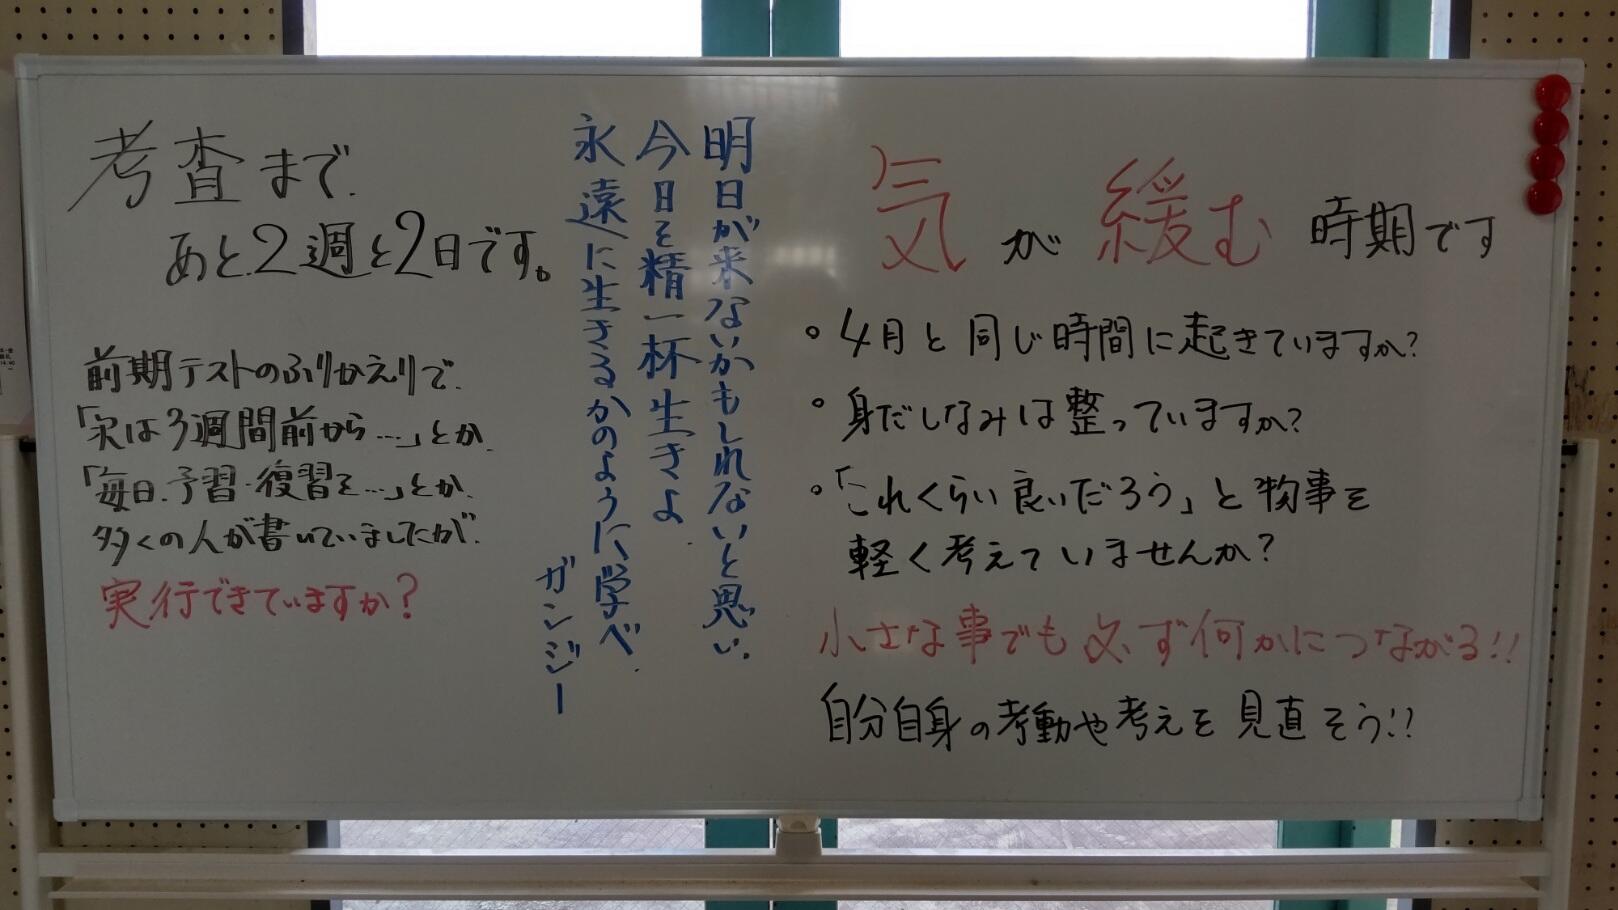 考査まで、
あと2週と2日です。
前期テストのふりかえりで、
「実は3週間前から…」とか、
「毎日、予習・復習を…」とか、
多くの人が書いていましたが、
実行できていますか?
明日が来ないかもしれないと思い、
今日を精一杯生きよ、
永遠に生きるかのように学べ、
ガンジー
気が緩む時期です
。4月と同じ時間に起きていますか?
。身だしなみは整っていますか?
。「これくらい良いだろう」と物事を
軽く考えていませんか?
小さな事でも必ず何かにつながる!!
自分自身の考動や考えを見直そう!!